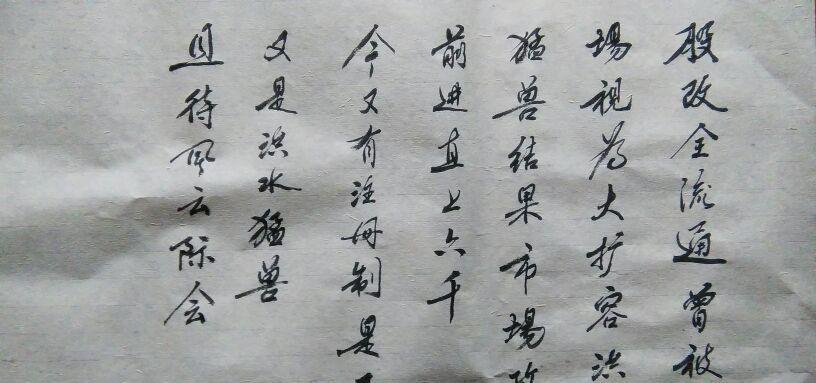 股改全流通曾被
場视为大扩容洪
猛兽结果市場
前进直上六千
今又有注册制是
又是洪水猛兽
且待风云际会